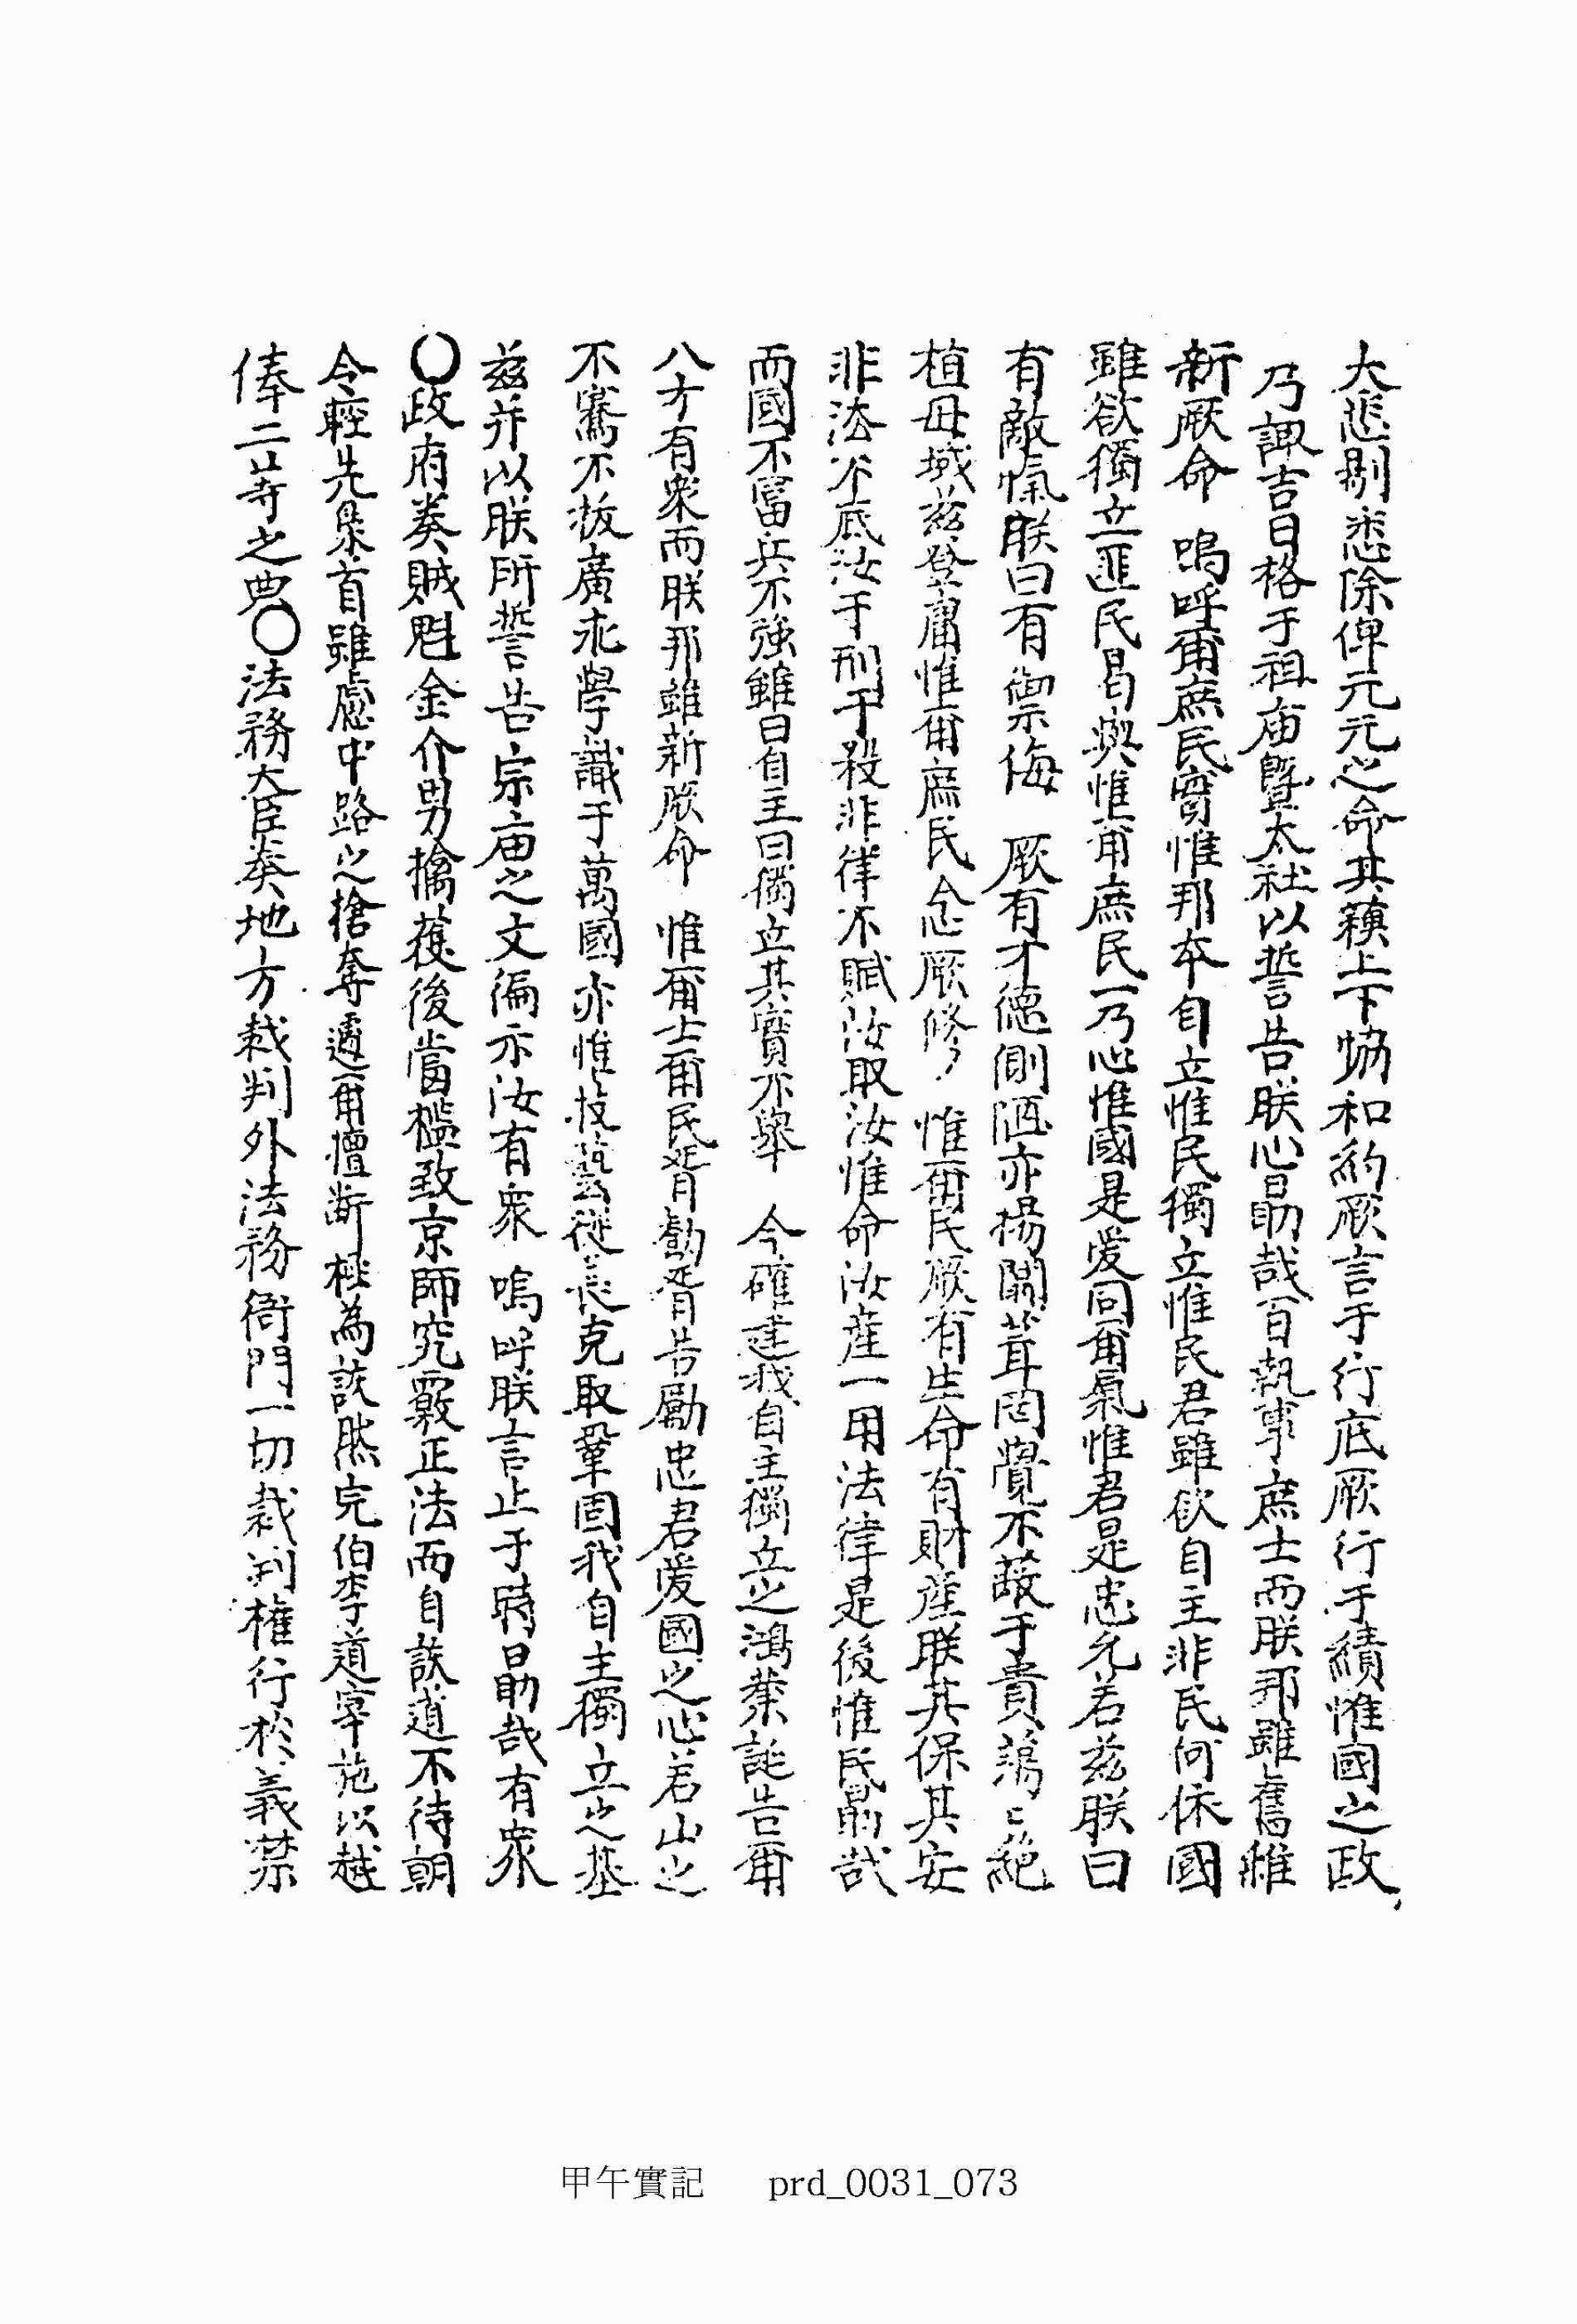 大悲剔悉除俾元元之命其穰上下協和約厥言于行底厥行于績惟國之政
乃諏吉日格于祖庙曁太社以誓告朕心勗哉百執事庶士而朕邦雖舊維
新厥命 嗚呼爾庶民實惟邦本自立惟民獨立惟民君雖欲自主非民何依國
雖欲獨立匪民曷與惟爾庶民一乃心惟國是爱同爾氣惟君是忠允若玆朕曰
有敵愾朕曰有禦侮 厥有才德側陋亦揚闒茸罔覺不蔽于貴蕩〻絶
植毋域玆登庸惟爾庶民念厥修 惟爾民厥有生命有財產朕其保其安
非法不底汝于刑于殺非律不賦汝取汝惟命汝産一用法律是後惟民勗哉
而國不富兵不強雖曰自主曰獨立其實不舉 今確建我自主獨立之鴻業誕告爾
八方有衆而朕邦雖新厥命 惟爾士爾民胥勸胥告勵忠君爱國之心若山之
不騫不拔廣求學識于萬國亦惟技藝從長克取鞏固我自主獨立之基
玆并以朕所誓告宗庙之文徧示汝有衆 嗚呼朕言止于時勗哉有衆
○政府奏賊魁金介男擒獲後當檻致京師究覈正法而自該道不待朝
令輕先梟首雖慮中路之搶奪遽爾擅斷極為該然完伯李道宰施以越
俸二等之典○法務大臣奏地方裁判外法務衙門一切裁判權行於義禁
甲午實記 prd_0031_073